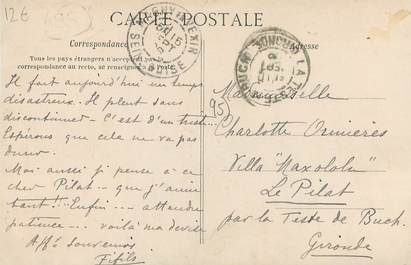 12€
CARTE POSTALE
Correspondance
Adresse
Tous les pays étrangers n'acceptent pas la
correspondance au recto, se renseigner à la
Il fait aujourd'hui un temps
désastreux. Il pleut sans
discontinuer – C'est d'un triste...
Espérons que cela ne va pas
durer.
Moi aussi je pense à ce
cher Pilat – que j'aime
tant!! Enfin... attendre
patience... voilà ma devise
Afft. Souvenirs
Fifils.
95
Mademoiselle
Charlotte
Villa "Maxolole"
Le Pilat
par la Teste de Buch.
Gironde
MAGNY EN VEXIN
SEINE ET OISE
LA TESTE